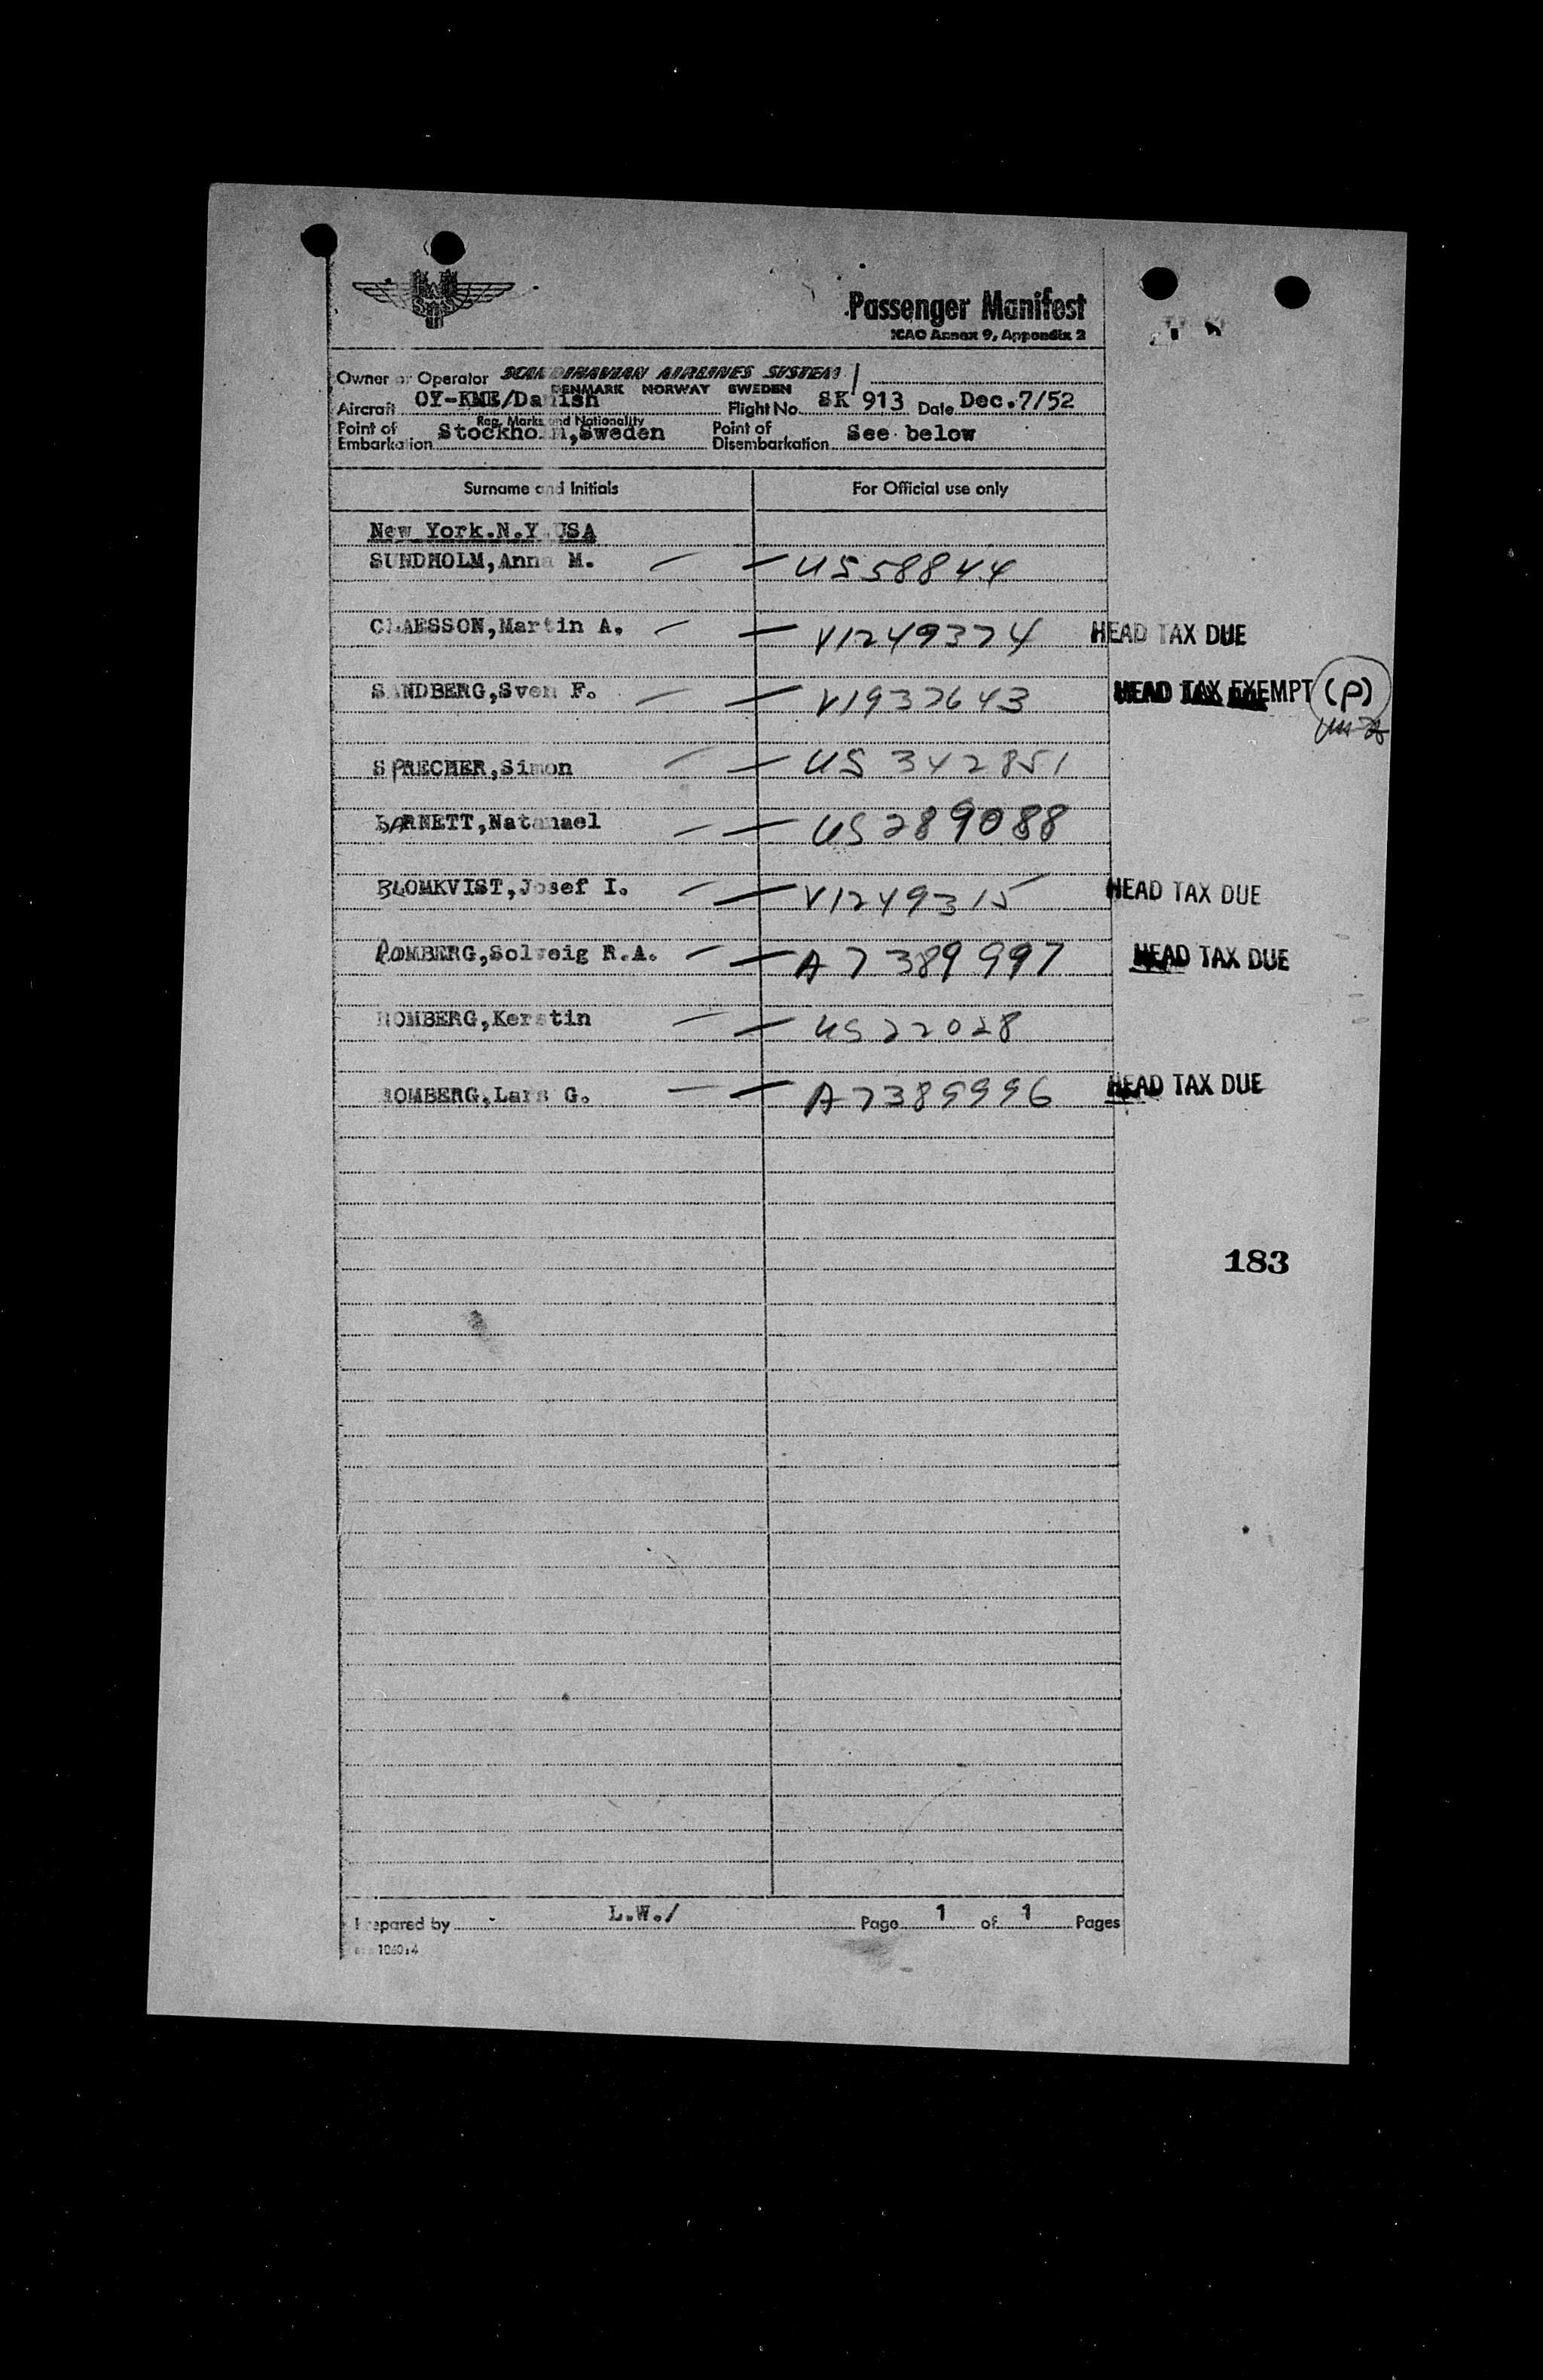 SAS
Passenger Manifest
ICAO Annex 9, Appendix 2
Owner or Operator SCANDINAVIAN AIRLINES SYSTEM
DENMARK NORWAY SWEDEN
Aircraft OY-KME/Danish Flight No. SK 913 Date Dec.7/52
Reg. Marks and Nationality
Point of Embarkation Stockholm,Sweden Point of Disembarkation See below
Surname and Initials For Official use only
New York.N.Y.USA
SUNDHOLM,Anna M. — — US58844
CLAESSON,Martin A. — — V1249374 HEAD TAX DUE
SANDBERG,Sven F. — — V1937643 HEAD TAX EXEMPT (P)
SPRECHER,Simon — — US 342851
BARNETT,Natanael — — US289088
BLOMKVIST,Josef I. — — V1249315 HEAD TAX DUE
ROMBERG,Solveig R.A. — — A7389997 HEAD TAX DUE
ROMBERG,Kerstin — — US22028
ROMBERG,Lars G. — — A7389996 HEAD TAX DUE
183
Prepared by L.W./ Page 1 of 1 Pages
1060:4